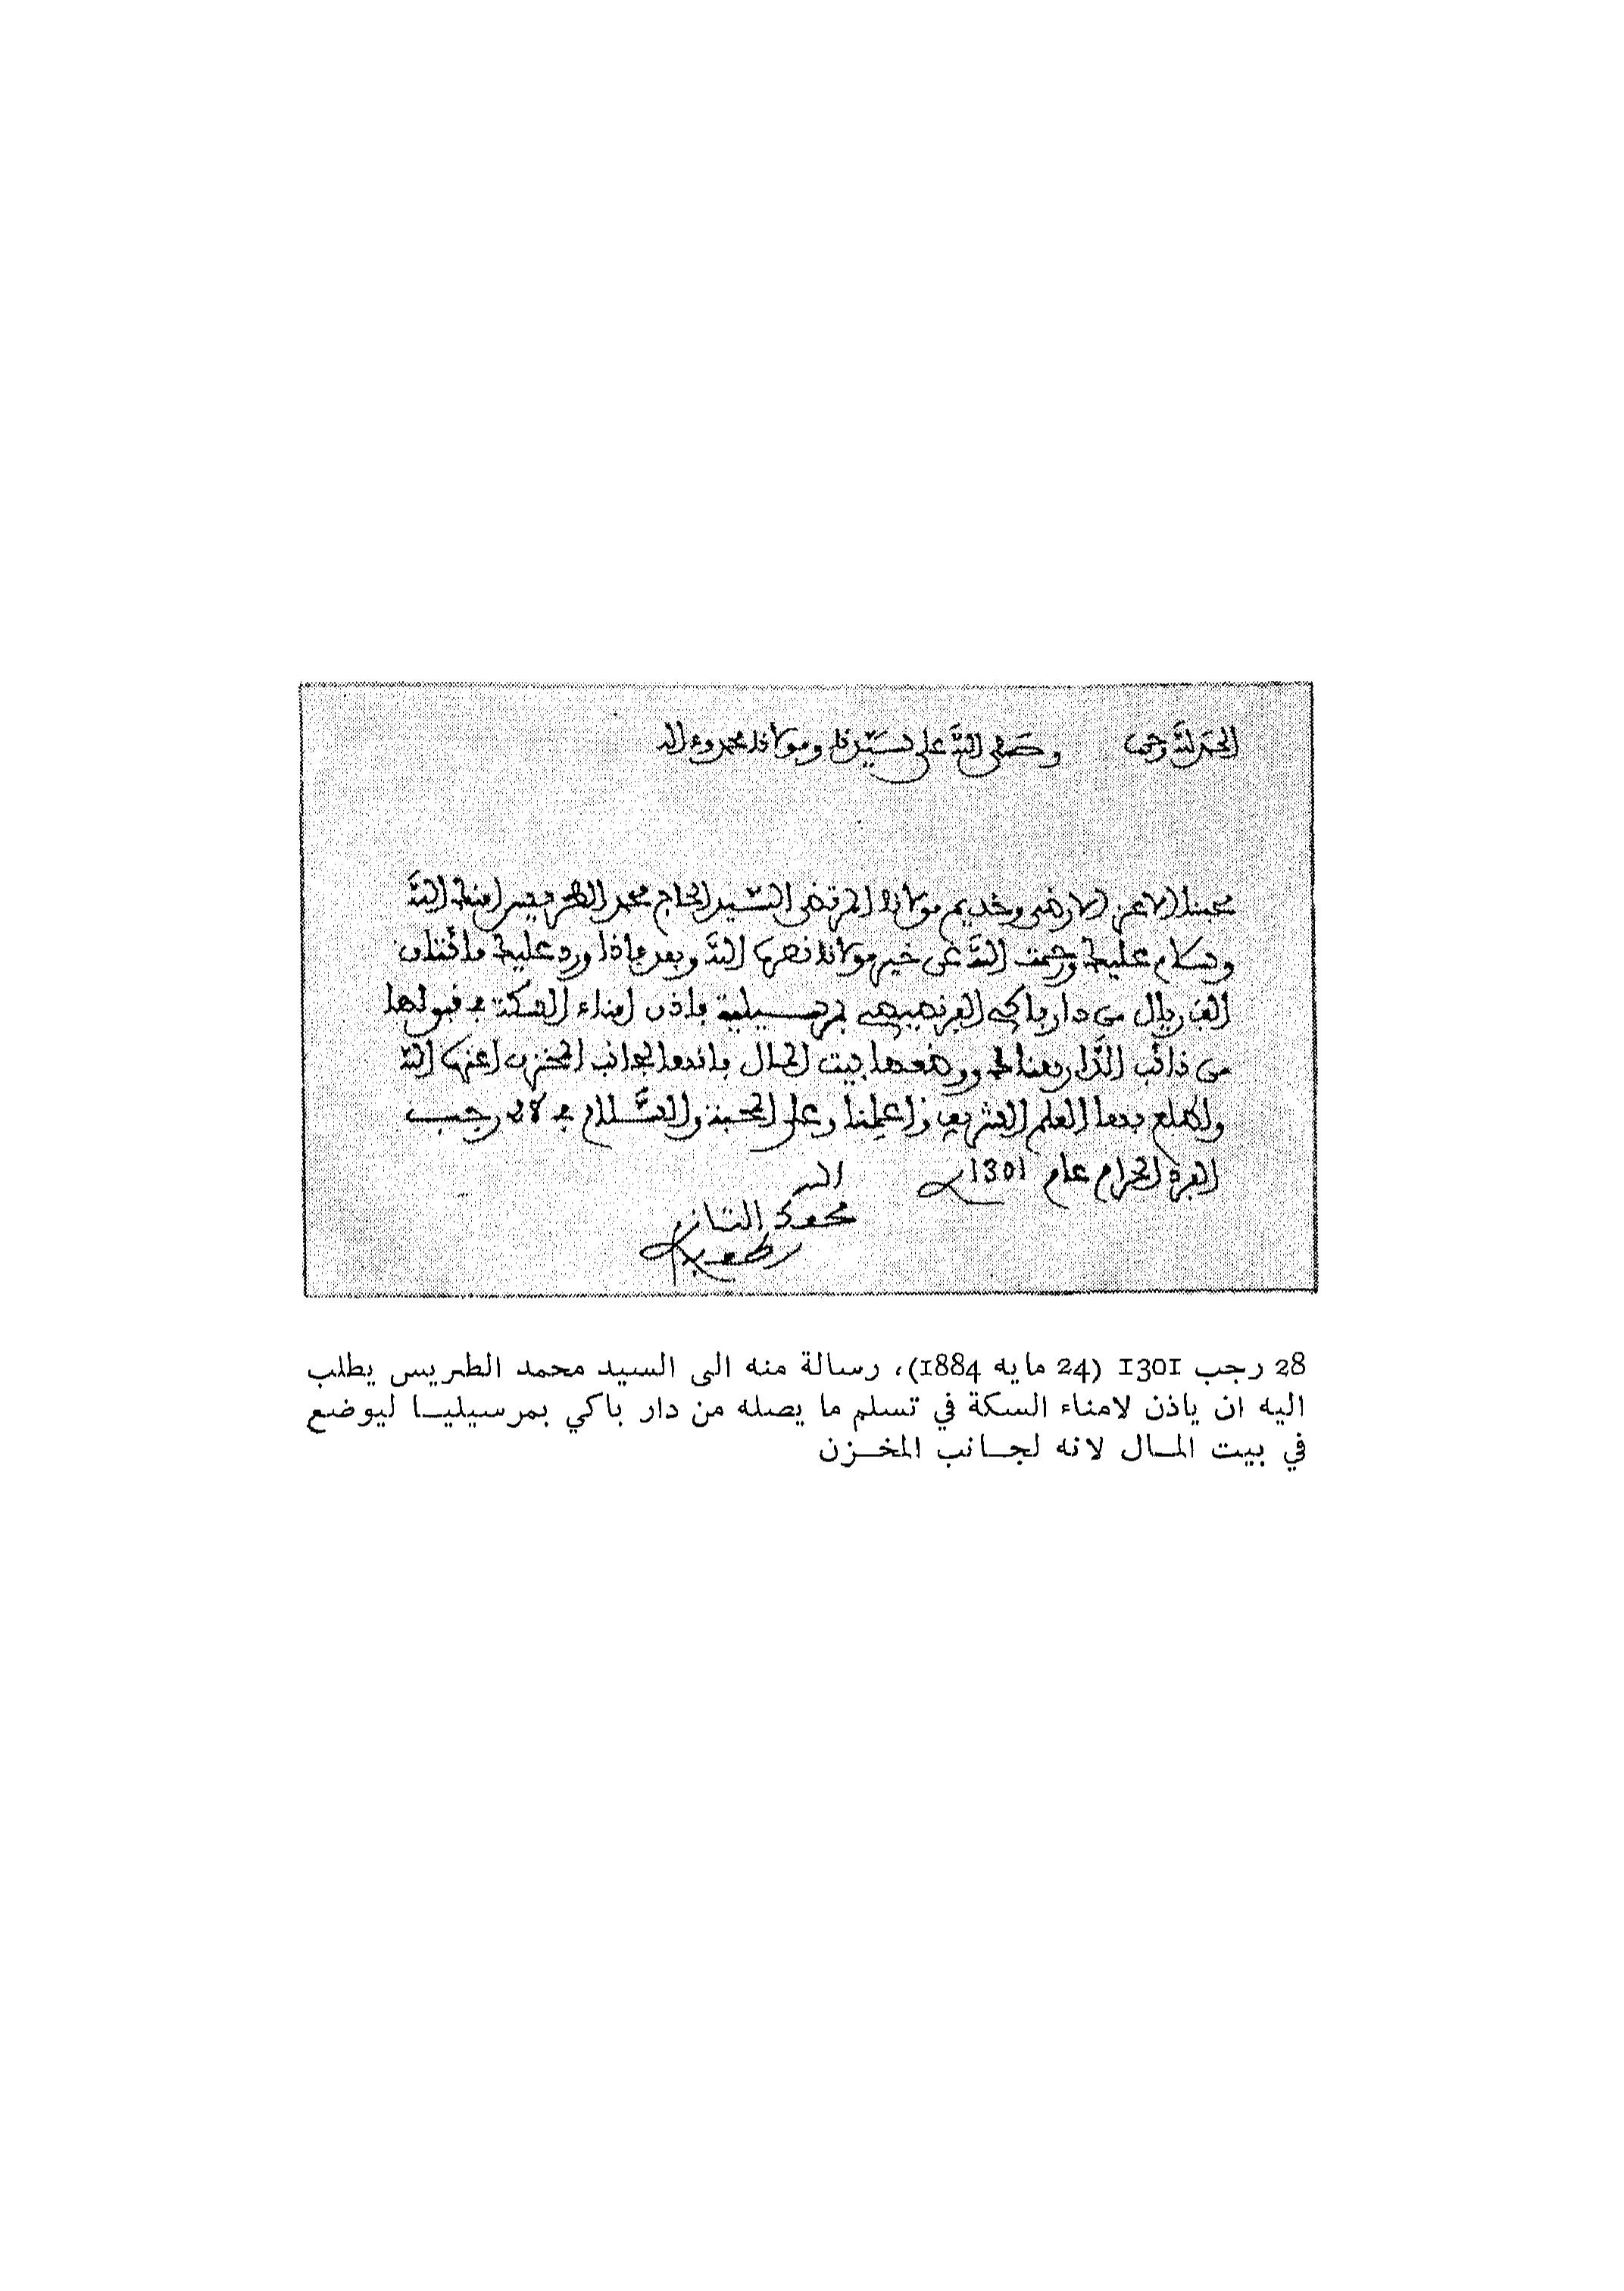 الحمد لله وحده وصلى الله على سيدنا ومولانا محمد وءاله
محبنا الاعز الارضى وخديم مولانا المرتضى السيد الحاج محمد الطريس امنك الله
وسلام عليك ورحمت الله عن خير مولانا نصره الله وبعد فاذا ورد عليك مائتان
الف ريال من دار باكي الفرنصيصي بمرسيلية فاذن امناء السكة في قبولها
من نائب الدار بطنجة ووضعها ببيت المال فانها لجانب المخزن اعزه الله
واطلع بها العلم الشريف واعلمنا وعلى المحبة والسلام في 28 رجب
الفرد الحرام عام 1301
محمد
28 رجب 1301 (24 مايه 1884)، رسالة منه الى السيد محمد الطريس يطلب
اليه ان ياذن لامناء السكة في تسلم ما يصله من دار باكي بمرسيليا ليوضع
في بيت المال لانه لجانب المخزن